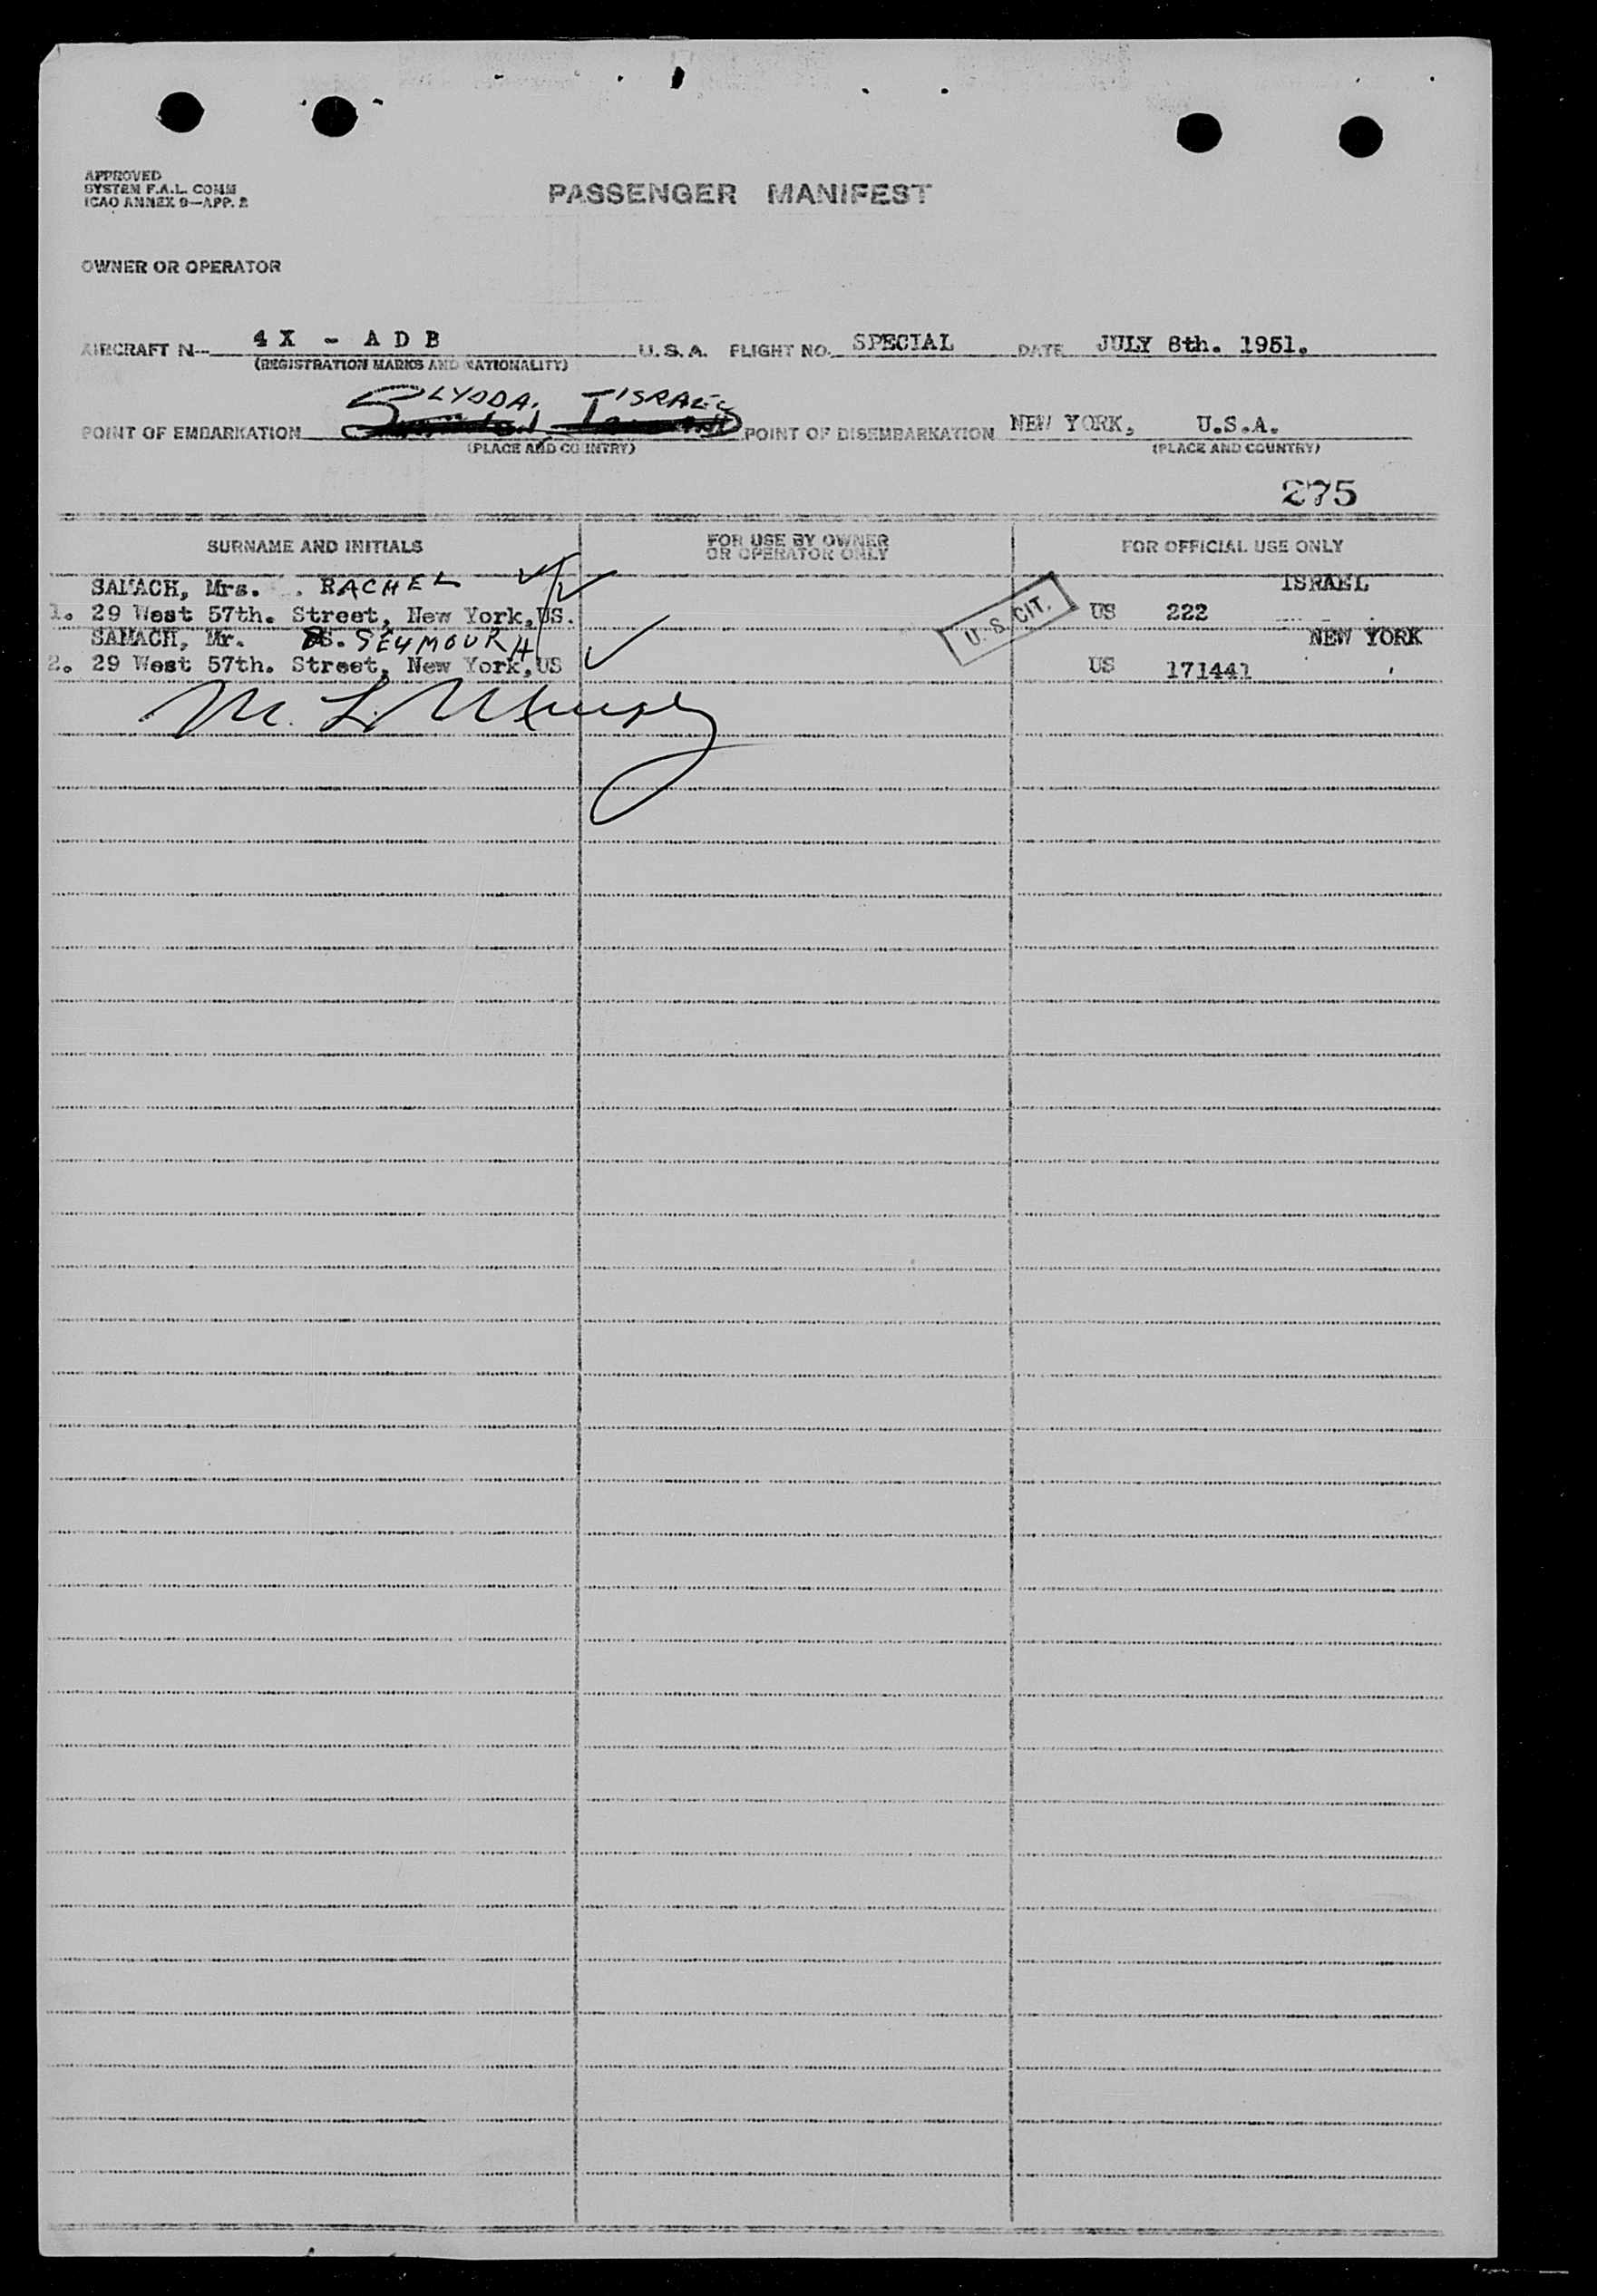 APPROVED
SYSTEM F.A.L. COMM
ICAO ANNEX 9—APP. 2
PASSENGER MANIFEST
OWNER OR OPERATOR
AIRCRAFT N-- 4 X - A D B U.S.A. FLIGHT NO. SPECIAL DATE JULY 8th. 1951.
(REGISTRATION MARKS AND NATIONALITY)
LYDDA, ISRAEL
POINT OF EMBARKATION POINT OF DISEMBARKATION NEW YORK, U.S.A.
(PLACE AND COUNTRY) (PLACE AND COUNTRY)
275
SURNAME AND INITIALS FOR USE BY OWNER OR OPERATOR ONLY FOR OFFICIAL USE ONLY
Mrs. RACHEL ISRAEL
1. 29 West 57th. Street, New York, US. U. S. CIT. US 222
SAMACH, Mr. S. SEYMOUR H NEW YORK
2. 29 West 57th. Street, New York, US US 171441
M. L.